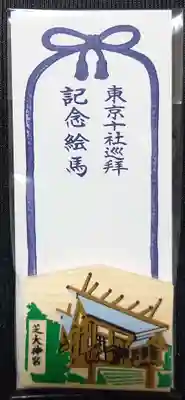 東京十社巡拝
記念絵馬
芝大神宮